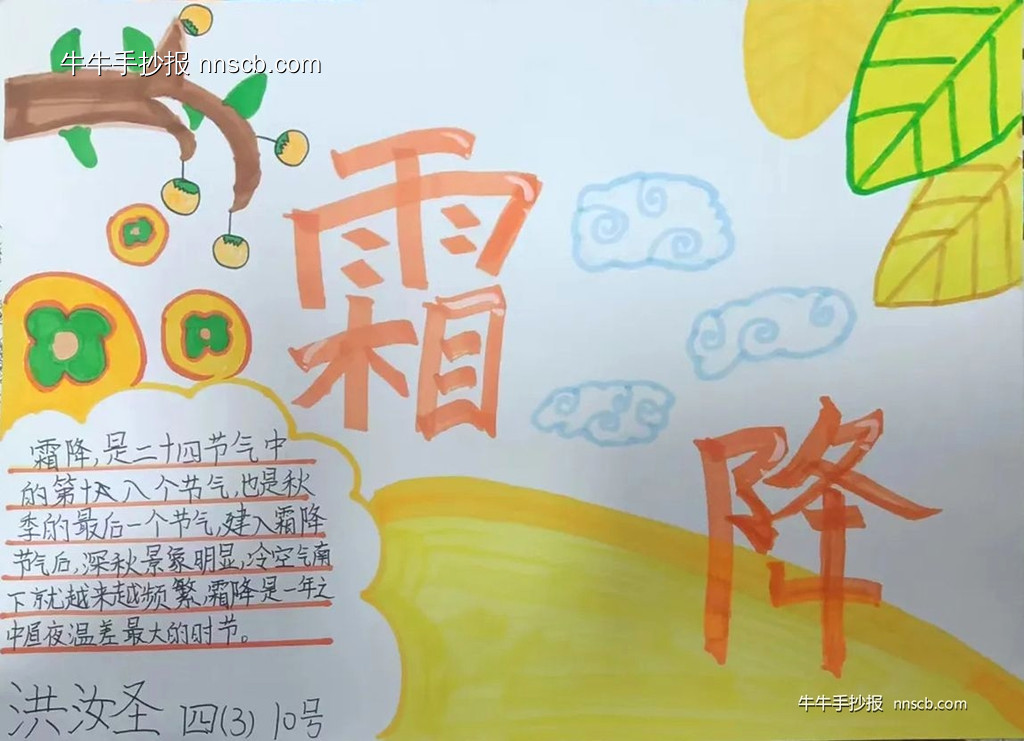 牛牛手抄报 nnscb.com
霜
降
霜降,是二十四节气中
的第十八个节气,也是秋
季的最后一个节气,建入霜降
节气后,深秋景象明显,冷空气南
下就越来越频繁,霜降是一年之
中昼夜温差最大的时节。
洪汝圣 四(3) 10号
牛牛手抄报 nnscb.com